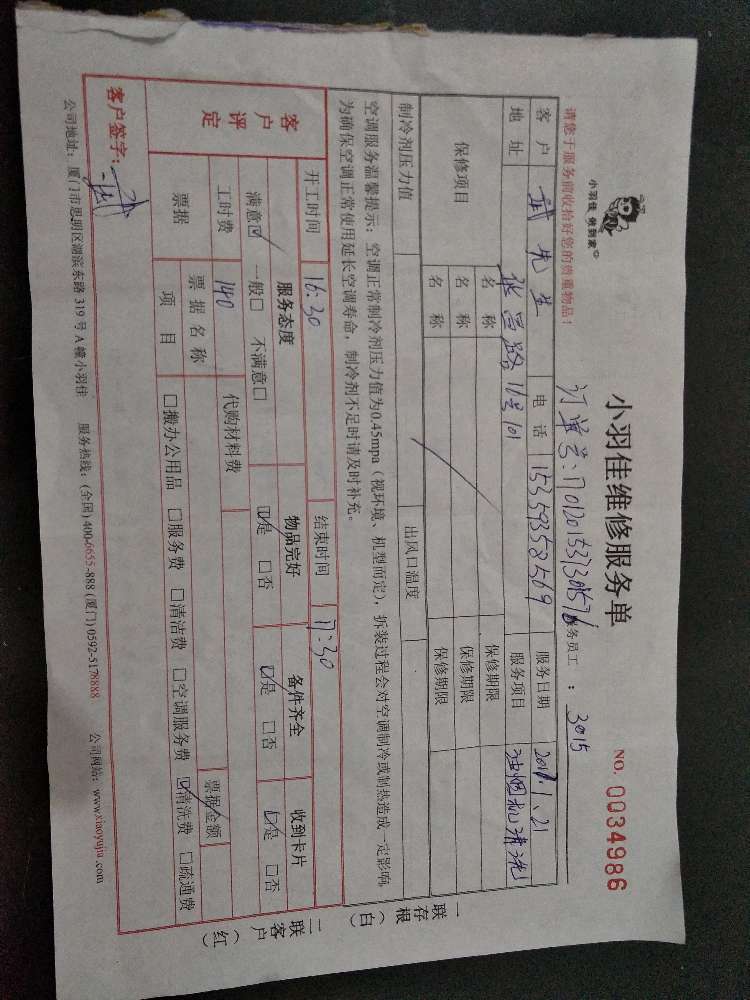 小羽佳 做到家
小羽佳维修服务单
NO. 0034986
请您于服务前收拾好您的贵重物品！
务员工：3015
客户 武先生 电话 15359358569 服务日期 2017.1.21
地址 11号101 服务项目 油烟机清洗
保修项目 名称 保修期限
名称 保修期限
名称 保修期限
制冷剂压力值 出风口温度
空调服务温馨提示：空调正常制冷剂压力值为0.45mpa（视环境、机型而定），拆装过程会对空调制冷或制热造成一定影响
为确保空调正常使用延长空调寿命，制冷剂不足时请及时补充。
开工时间 16:30 结束时间 17:30
客户评定 服务态度 物品完好 备件齐全 收到卡片
满意☑ 一般□ 不满意□ ☑是 □否 ☑是 □否 ☑是 □否
工时费 140 代购材料费 票据金额
票据 票据名称
项目 □搬办公用品 □服务费 □清洁费 □空调服务费 ☑清洗费 □疏通费
客户签字： 武
公司地址：厦门市思明区湖滨东路319号A幢小羽佳 服务热线：(全国) 400-6655-888 (厦门) 0592-5178888 公司网站：www.xiaoyujia.com
一联存根（白）
二联客户（红）